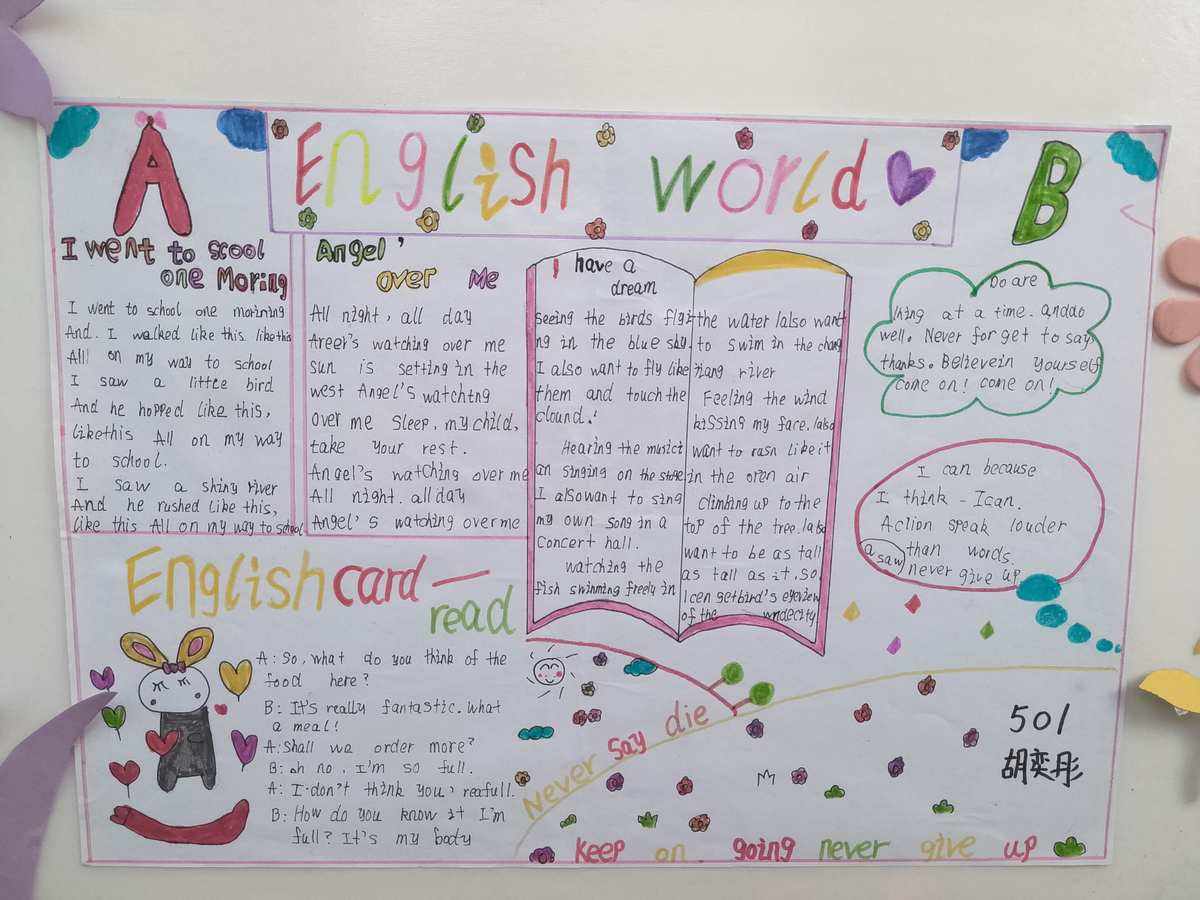 A
English world
B
I went to scool
one Moring
I went to school one morining
And. I walked like this likethis
Alll on my way to school
I saw a little bird
And he hopped like this,
likethis All on my way
to school.
I saw a shiny river
And he rushed like this,
like this All on my way to school
Angel '
over Me
All night, all day
Areer's watching over me
sun is setting in the
west Angel's watchtng
over me sleep, my child,
take your rest.
Angel's watching over me
All night. all day
Angel's watching over me
I have a
dream
seeing the birds flyi
ng in the blue sky.
I also want to fly like
them and touch the
clound.!
Hearing the musici
an singing on the stage
I alsowant to sing
my own song in a
concert hall.
watching the
fish swimming freely in
the water lalso want
to swim in the chang
riang river
Feeling the wind
kissing my face. lalso
want to rasn like it
in the oren air
climbing up to the
top of the tree. lalso
want to be as tall
as tall as it. so
Icen getbird's eyeview
of the wndecity
Do are
thing at a time. anddo
well. Never forget to say,
thanks. Believein yourself
come on! come on!
I can because
I think - Ican.
Aclion speak louder
than words.
a saw
never give up
English card
read
A: So, what do you think of the
food here?
B: It's really fantastic. what
a meal!
A: Shall we order more?
B: oh no, I'm so full.
A: I don't think you, reafull.
B: How do you know it I'm
full? It's my body
Never say die
501
胡奕彤
keep on. going never give up